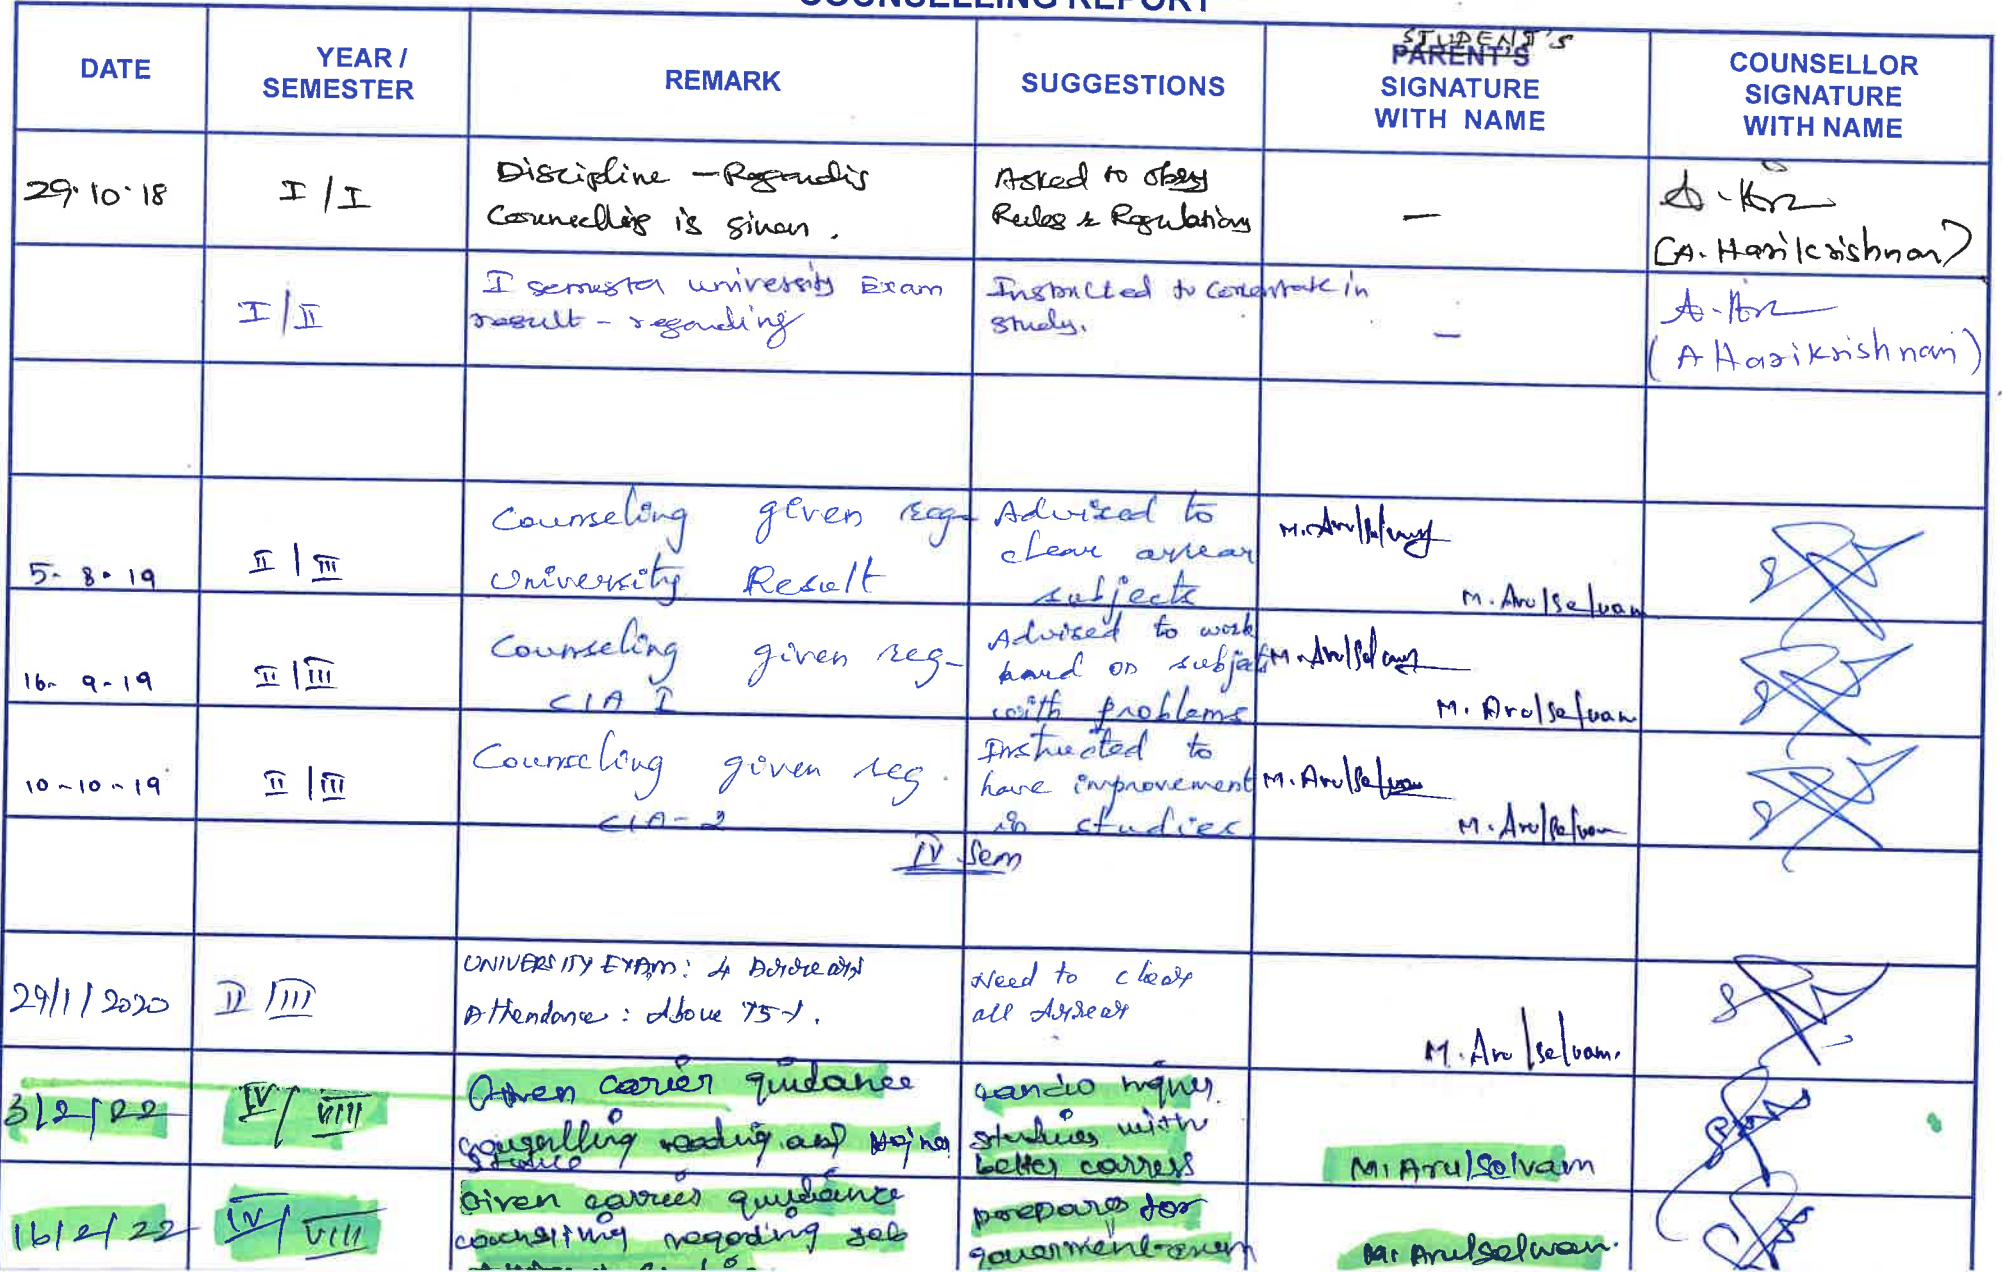 COUNSELLING REPORT
DATE
YEAR /
SEMESTER
REMARK
SUGGESTIONS
STUDENT'S
PARENT'S
SIGNATURE
WITH NAME
COUNSELLOR
SIGNATURE
WITH NAME
29.10.18
I / I
Discipline - Regardig
Counsellig is given.
Asked to obey
Rules & Regulations
—
A. Kr
(A. Harikrishnan)
I / II
I semester university Exam
result - regarding
Instructed to concentrate in
study.
—
A. Kr
(A Harikrishnan)
5-8-19
II / III
Counseling given reg-
University Result
Advised to
clear arrear
subjects
M. Arulselvan
M. Arulselvan
16-9-19
II / III
Counseling given reg-
CIA I
Advised to work
hard on subject
with problems
M. Arulselvan
M. Arulselvan
10-10-19
II / III
Counseling given reg.
CIA-2
Instructed to
have improvement
in studies
M. Arulselvan
M. Arulselvan
IV Sem
29/1/2020
II / III
UNIVERSITY EXAM: 4 Arrears
Attendance: Above 75%.
Need to clear
all Arrear
M. Arulselvam.
3/2/22
IV / VIII
Given carier guidance
counselling reading and
studies with
better
M. Arulselvam
16/2/22
IV / VIII
Given carrier guidance
counseling regoding job
prepare for
gouverment exam
M. Arulselvam.